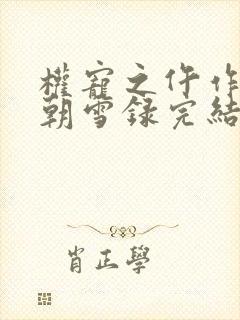 權寵之仵作
朝雪録完結
肖正學